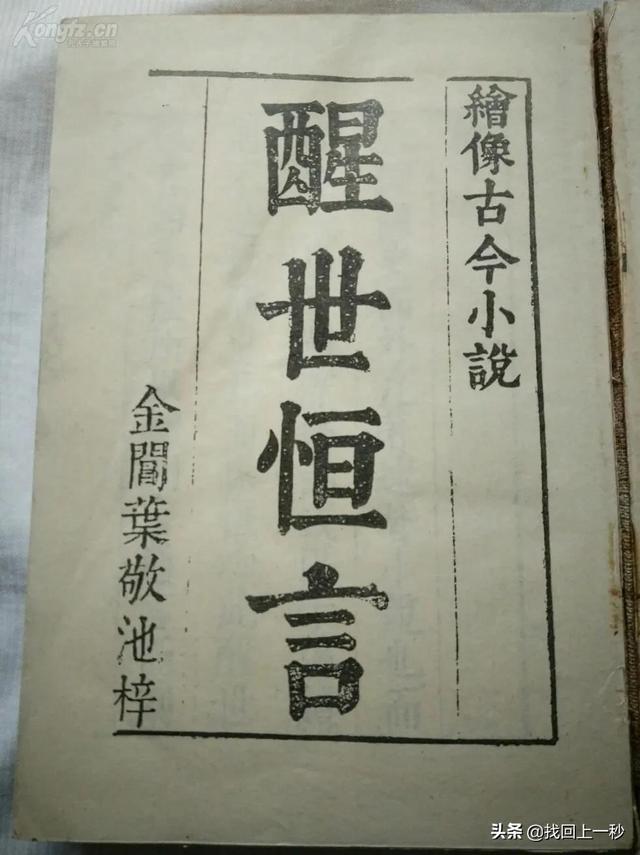 繪像古今小說
醒世恒言
金閶葉敬池梓
Kongfz.cn
头条 @找回上一秒